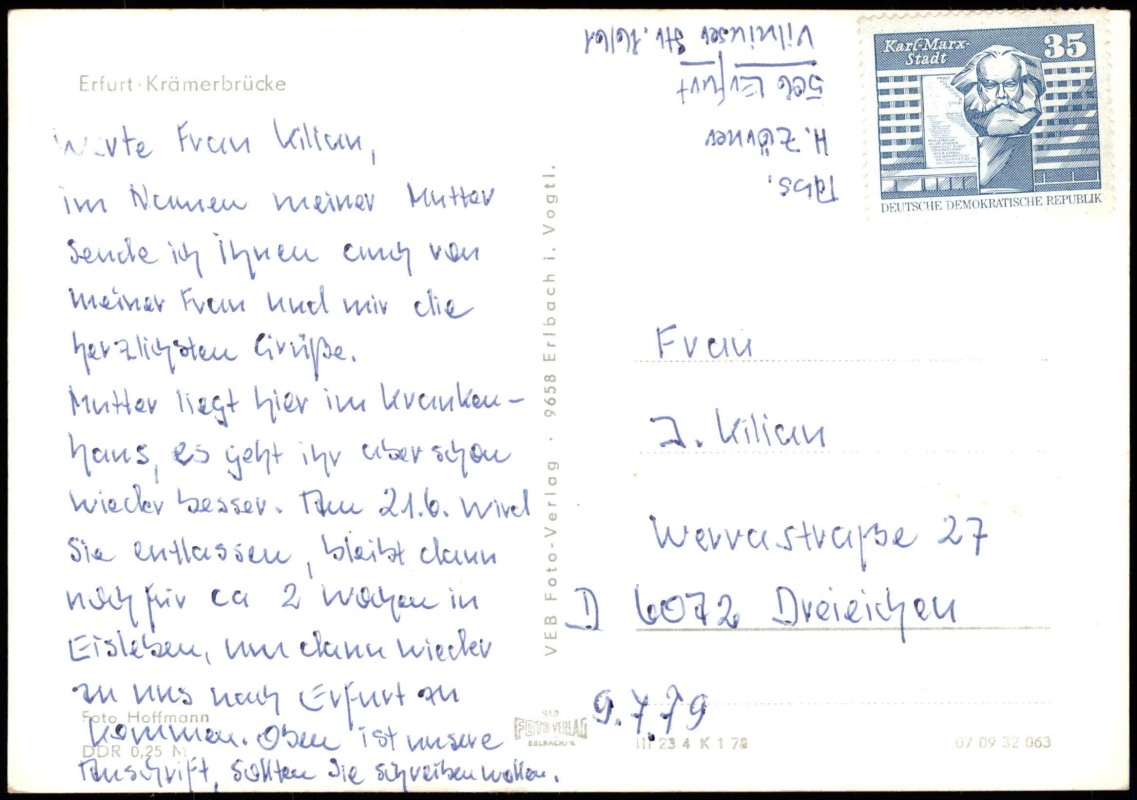 Erfurt · Krämerbrücke
Werte Frau Kilian,
im Namen meiner Mutter
sende ich Ihnen auch von
meiner Frau und mir die
herzlichsten Grüße.
Mutter liegt hier im Kranken-
haus, es geht ihr aber schon
wieder besser. Am 21.6. wird
Sie entlassen, bleibt dann
noch für ca 2 Wochen in
Eisleben, um dann wieder
zu uns nach Erfurt zu
kommen. Oben ist unsere
Anschrift, sollten Sie schreiben wollen.
Foto Hoffmann
DDR 0,25 M
VEB Foto-Verlag · 9658 Erlbach i. Vogtl.
Abs.
H. Zörner
506 Erfurt
Vilniuser Str. 16/61
Karl-Marx-
Stadt
35
DEUTSCHE DEMOKRATISCHE REPUBLIK
Frau
J. Kilian
Werrastraße 27
D 6072 Dreieichen
9.7.79
VEB
FOTO VERLAG
ERLBACH/V.
III 23 4 K 1 79
07 09 32 063